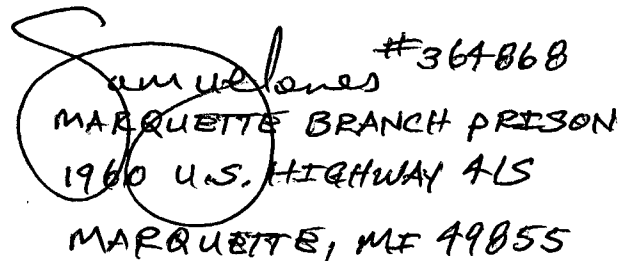 Samuel Jones #364868
MARQUETTE BRANCH PRISON
1960 U.S. HIGHWAY 41S
MARQUETTE, MI 49855